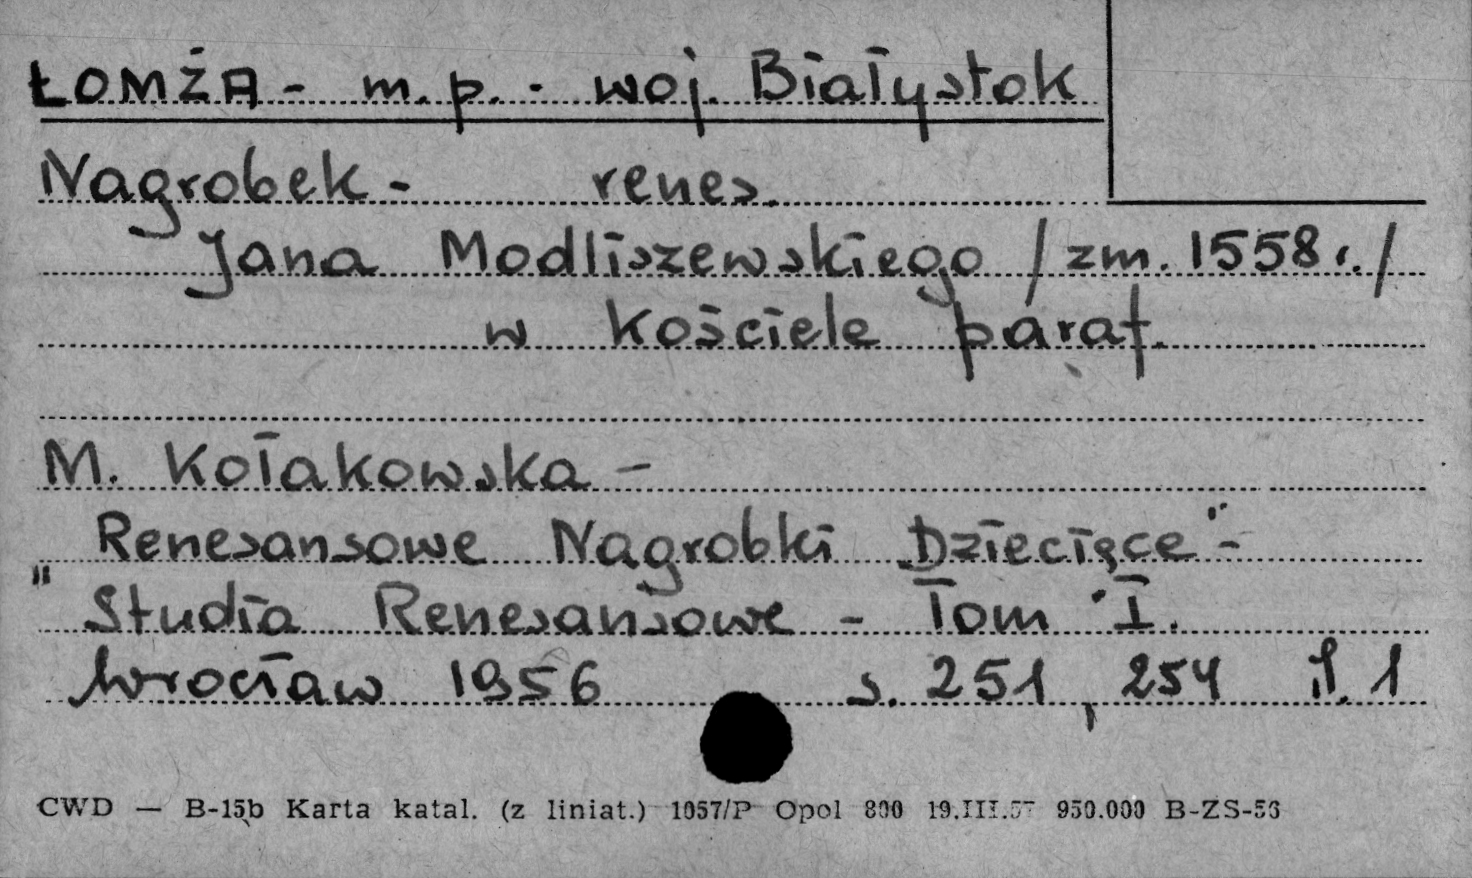 ŁOMŻA - m.p. - woj. Białystok
Nagrobek - renes.
Jana Modliszewskiego /zm. 1558 r./
w kościele paraf.
M. Kołakowska -
Renesansowe Nagrobki Dziecięce" -
"Studia Renesansowe - Tom I.
Wrocław 1956 s. 251, 254 il. 1
CWD — B-15b Karta katal. (z liniat.) 1057/P Opol 800 19.III.57 950.000 B-ZS-53